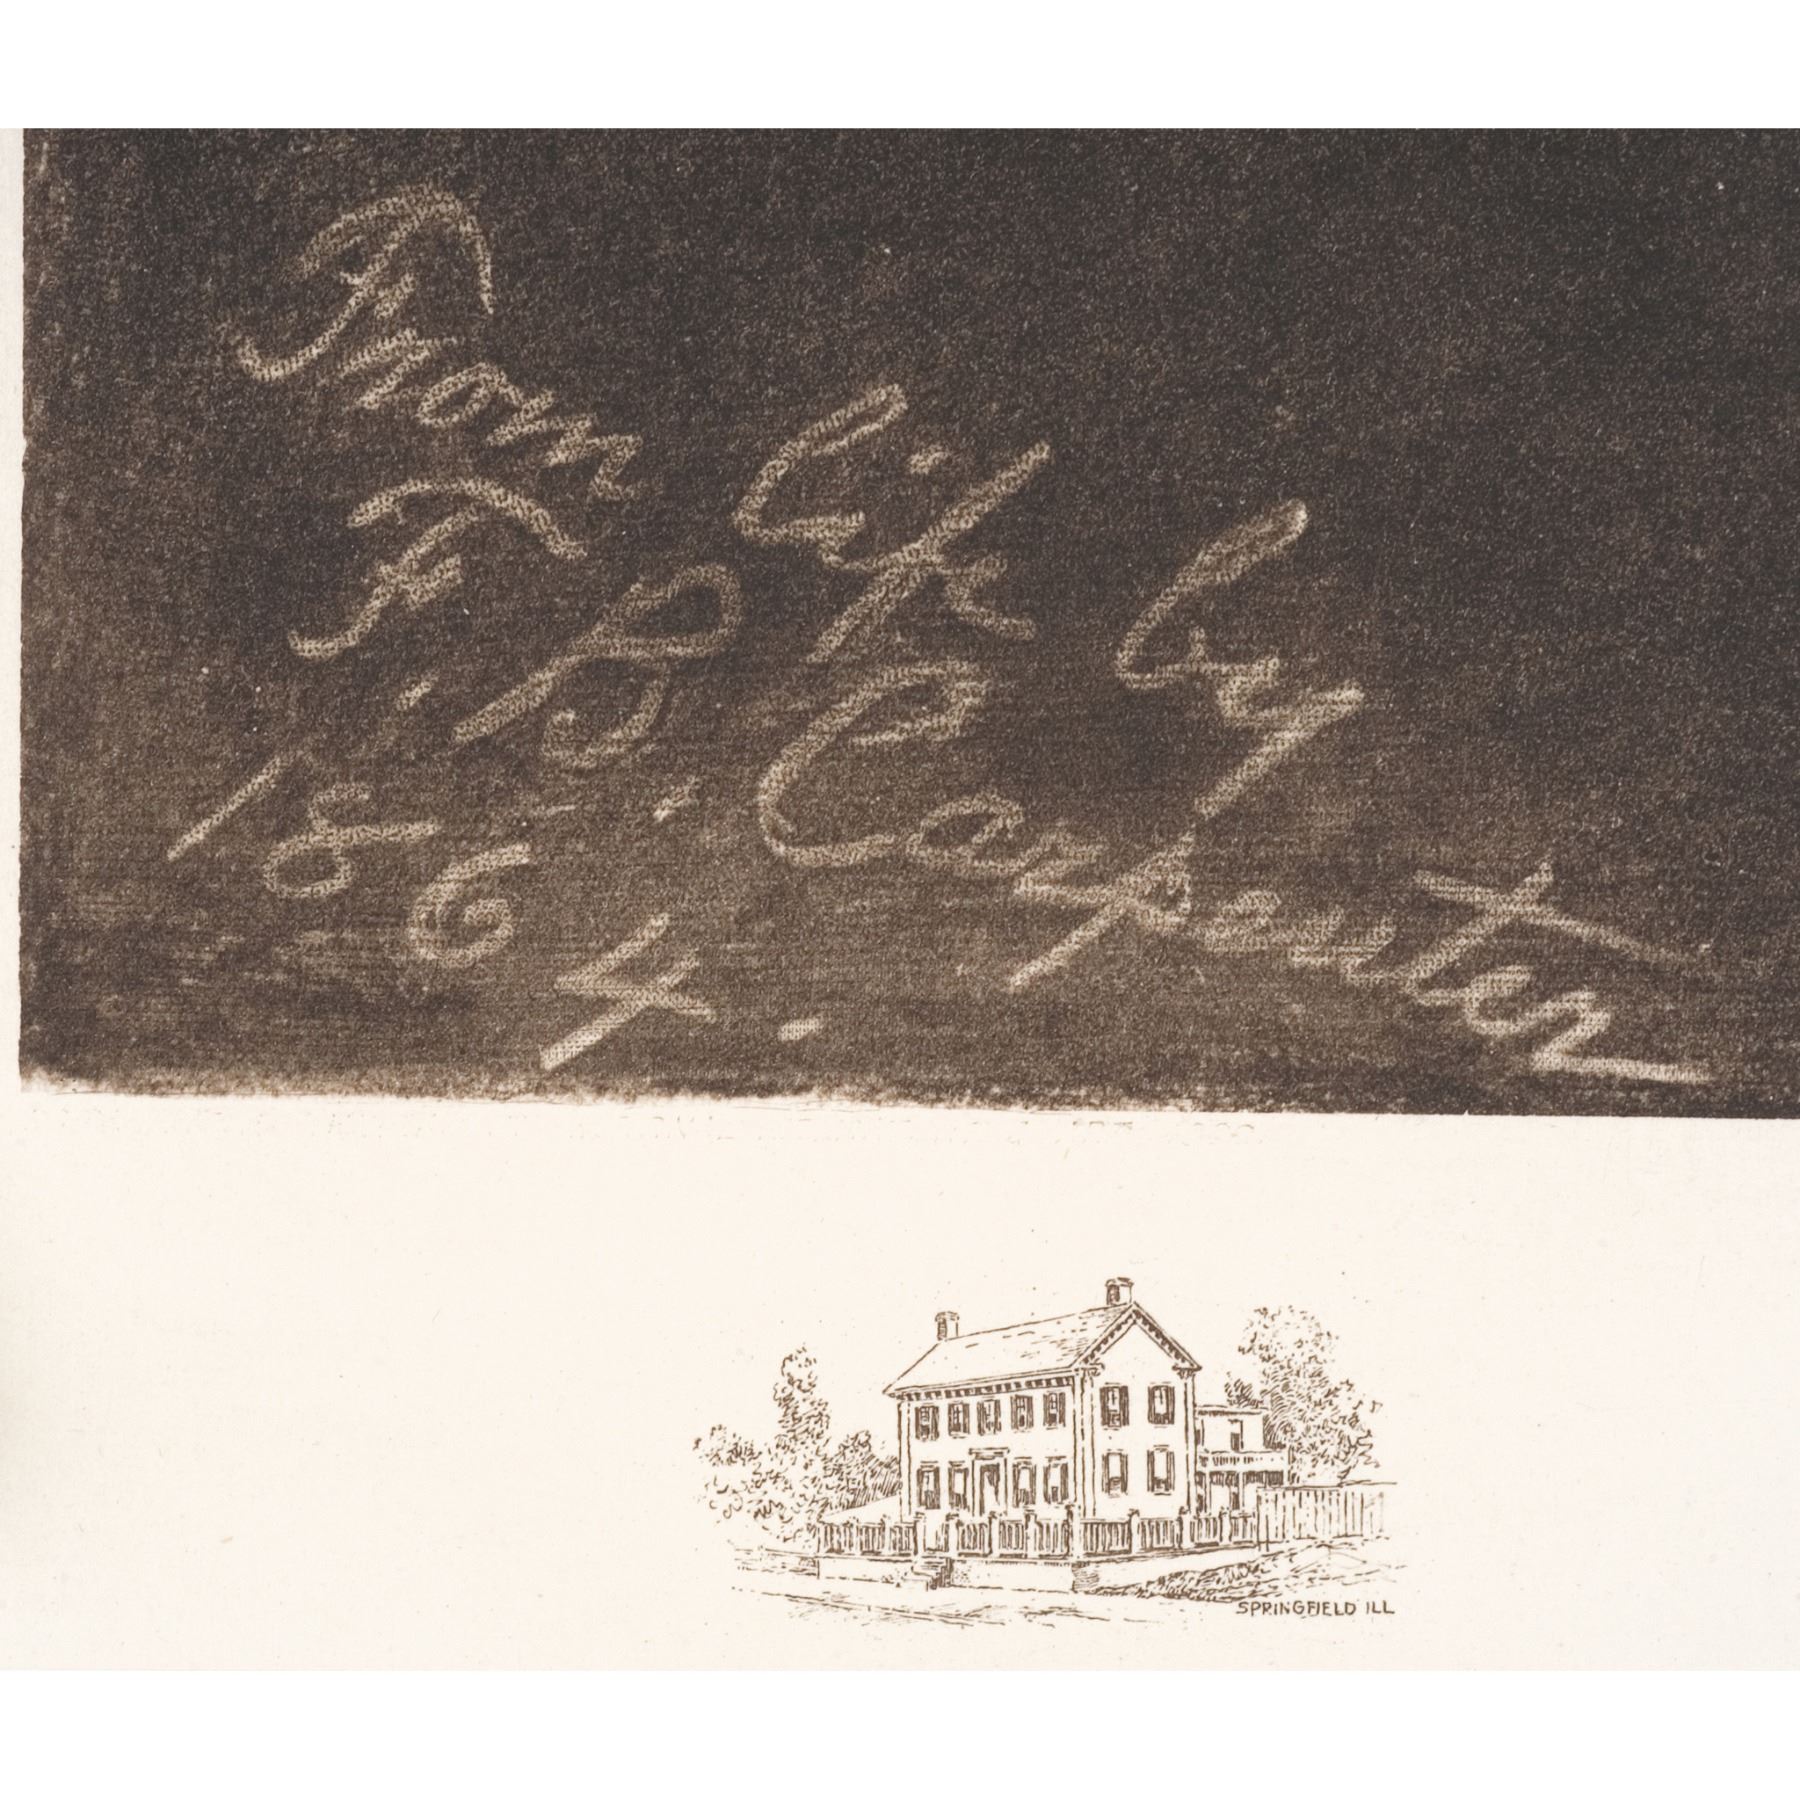 From life by
F. B. Carpenter
1864.
SPRINGFIELD ILL